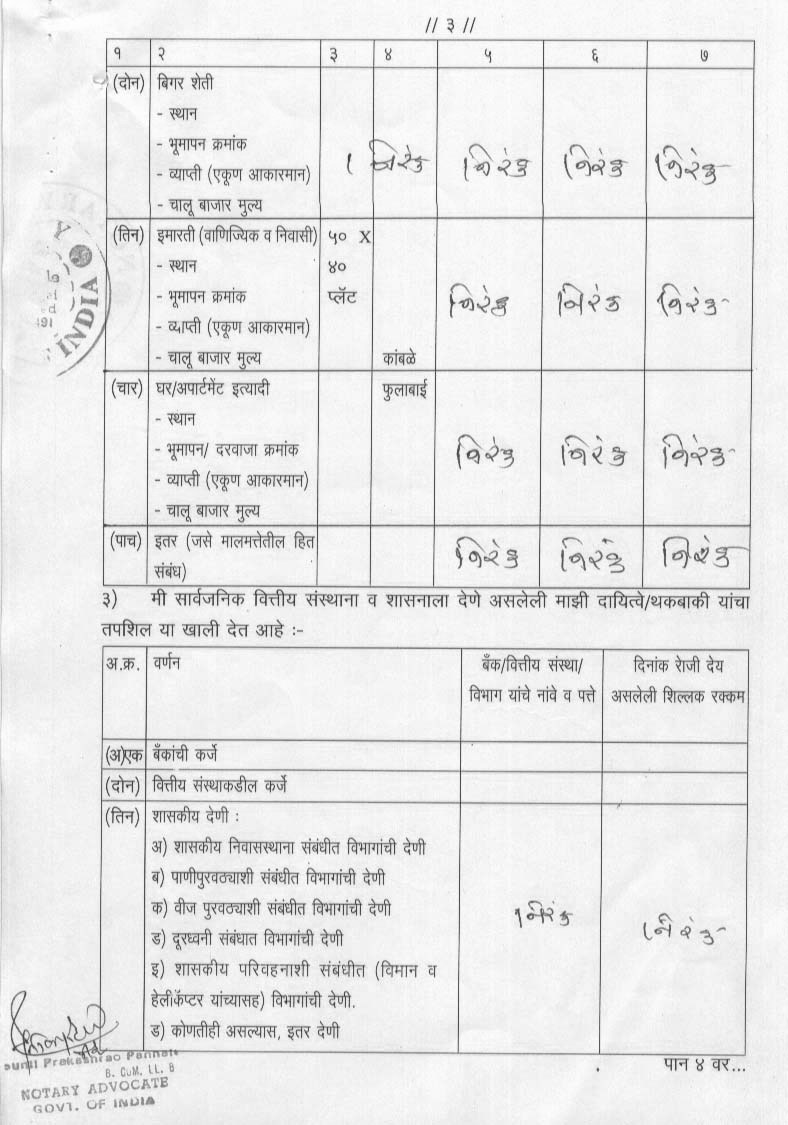 // ३ //
१ २ ३ ४ ५ ६ ७
(दोन) बिगर शेती
- स्थान
- भूमापन क्रमांक
- व्याप्ती (एकूण आकारमान) निरंक निरंक निरंक निरंक
- चालू बाजार मुल्य
(तिन) इमारती (वाणिज्यिक व निवासी) ५० X
- स्थान ४०
- भूमापन क्रमांक प्लॅट निरंक निरंक निरंक
- व्याप्ती (एकूण आकारमान)
- चालू बाजार मुल्य कांबळे
(चार) घर/अपार्टमेंट इत्यादी फुलाबाई
- स्थान
- भूमापन/ दरवाजा क्रमांक निरंक निरंक निरंक
- व्याप्ती (एकूण आकारमान)
- चालू बाजार मुल्य
(पाच) इतर (जसे मालमत्तेतील हित निरंक निरंक निरंक
संबंध)
३) मी सार्वजनिक वित्तीय संस्थाना व शासनाला देणे असलेली माझी दायित्वे/थकबाकी यांचा
तपशिल या खाली देत आहे :-
अ.क्र. वर्णन बँक/वित्तीय संस्था/ दिनांक रोजी देय
विभाग यांचे नांवे व पत्ते असलेली शिल्लक रक्कम
(अ)एक बँकांची कर्जे
(दोन) वित्तीय संस्थाकडील कर्जे
(तिन) शासकीय देणी :
अ) शासकीय निवासस्थाना संबंधीत विभागांची देणी
ब) पाणीपुरवठ्याशी संबंधीत विभागांची देणी
क) वीज पुरवठ्याशी संबंधीत विभागांची देणी निरंक निरंक
ड) दूरध्वनी संबंधात विभागांची देणी
इ) शासकीय परिवहनाशी संबंधीत (विमान व
हेलिकॅप्टर यांच्यासह) विभागांची देणी.
ड) कोणतीही असल्यास, इतर देणी
पान ४ वर...
Prakashrao
B. CoM. LL. B
NOTARY ADVOCATE
GOVT. OF INDIA
INDIA